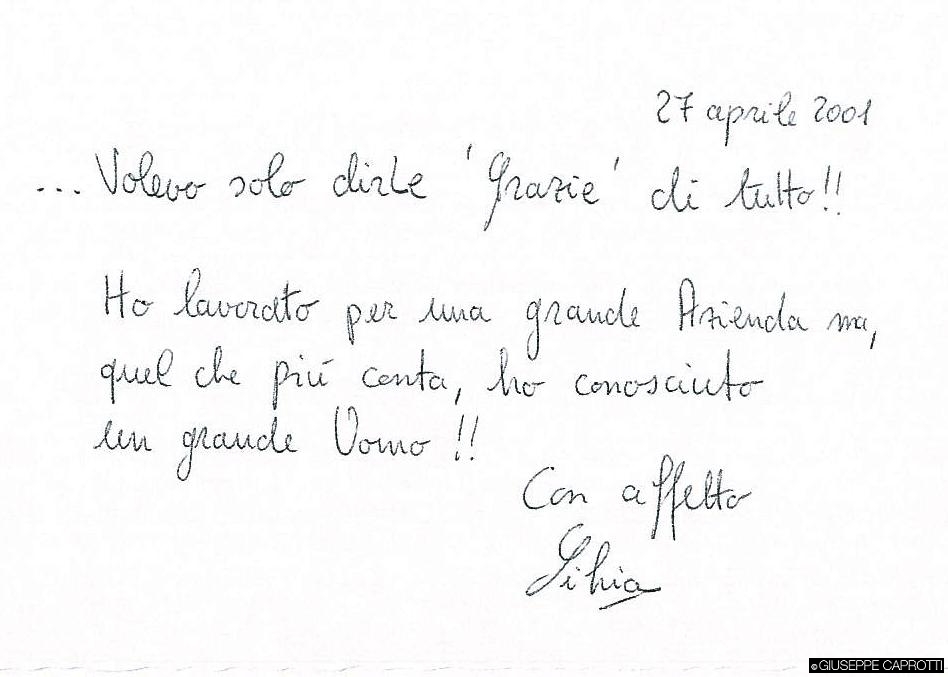 27 aprile 2001
... Volevo solo dirLe 'Grazie' di tutto!!
Ho lavorato per una grande Azienda ma,
quel che più conta, ho conosciuto
un grande Uomo!!
Con affetto
Silvia
©GIUSEPPE CAPROTTI